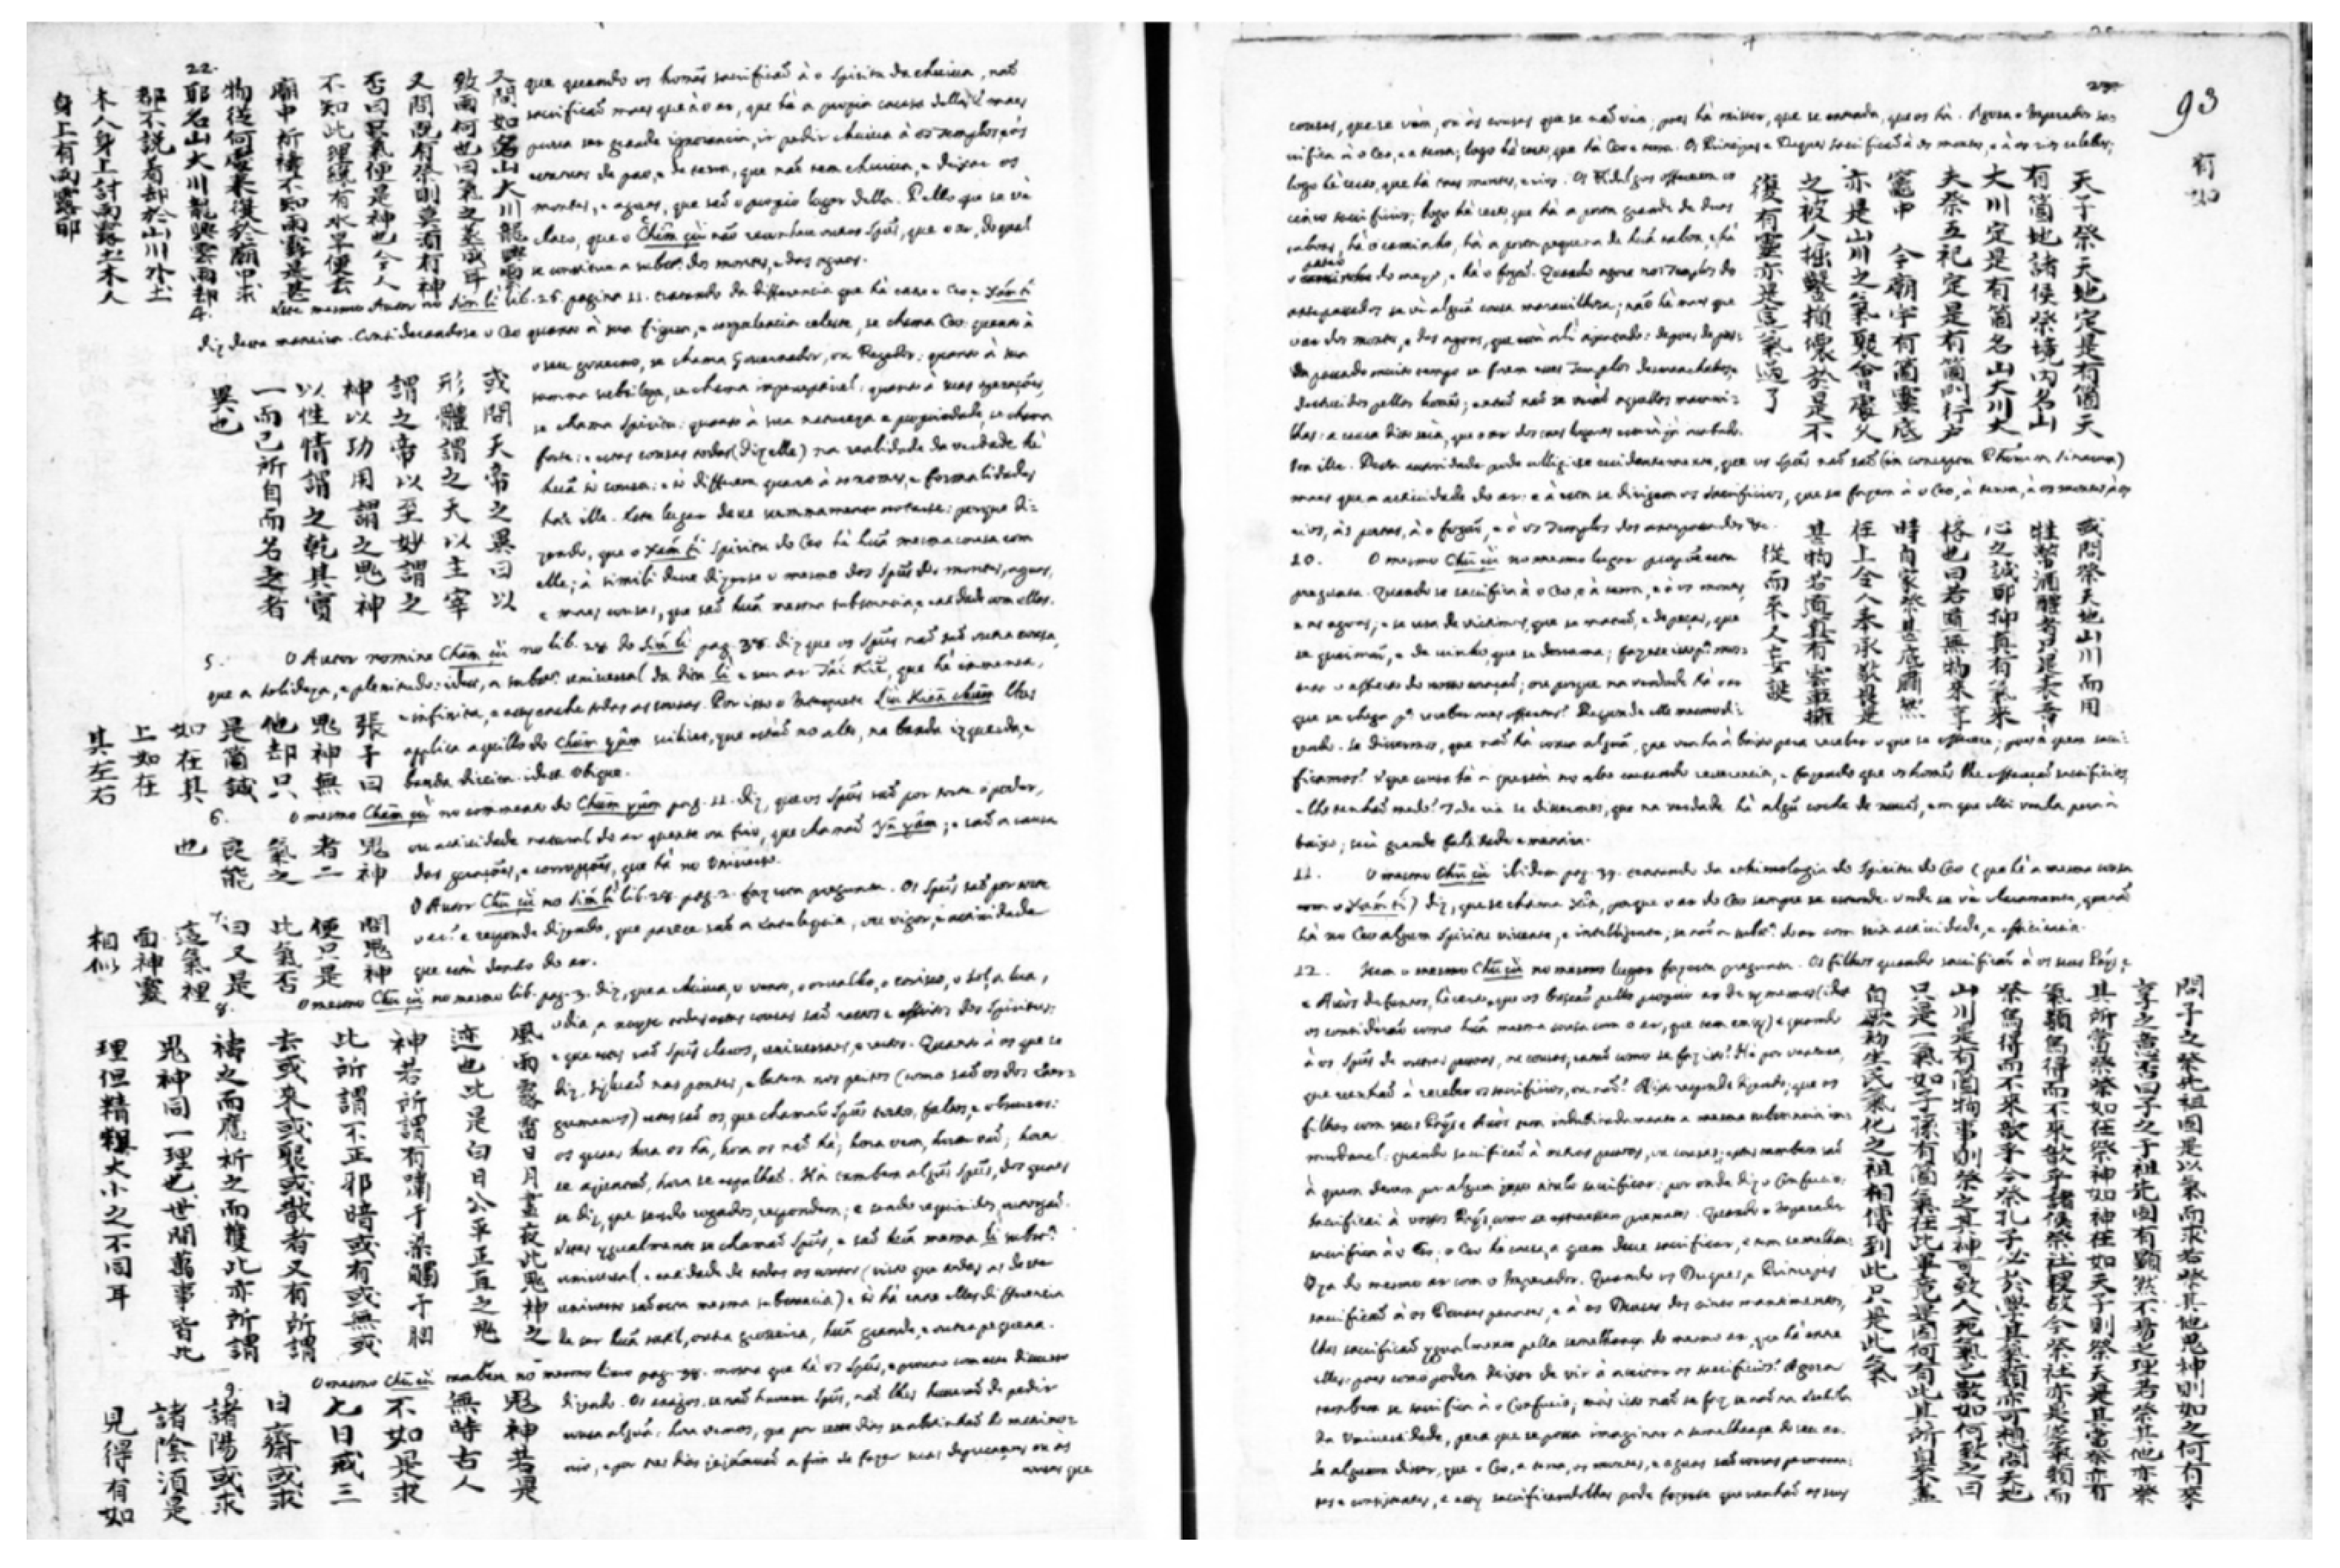 22.
que quando os homẽs sacrificaõ à o spiritu da chuiua, naõ
sacrificaõ maes que à o ar, que hà a propia causa della; maes
parece ser grande ignorancia, ir pedir chuiua à os templos,
de pao, e de terra, que naõ tem chuiua, e deixar os
montes, e aguas, que saõ o propio lugar della. Pello que se vè
claro, que o Chū çù não reconhece outros Spũs, que o ar, do qual
se constitue a substª dos montes, e das aguas.
又問如名山大川能興雲
致雨何也曰氣之蒸成耳
又問既有祭則莫須有神
否曰只氣便是神也今人
不知此理纔有水旱便去
廟中祈禱不知雨露是甚
物從何處來復於廟中求
耶名山大川能興雲雨却
都不說着却於山川外土
木人身上討雨露土木人
身上有雨露耶
4.
Este mesmo Autor no Sím lì lib. 26. pagina 11. tratando da differencia que hà entre o Ceo, e Xám tí
diz desta maneira. Considerandose o Ceo quanto à sua figura, e corpulencia celeste, se chama Ceo: quanto à
o seu governo, se chama Governador, ou Regedor: quanto à sua
summa subtileza, se chama imperceptivel: quanto à suas operações,
se chama Spiritu: quanto à sua natureza e propriedade, se chama
forte: e estas cousas todas (diz elle) na realidade da verdade hè
huã sò cousa: e sò differem quanto à os nomes, e formalidades
Este lugar deve summamente notarse: porque di-
zendo, que o Xám tí Spiritu do Ceo hè huã mesma cousa com
elle; à simili deve dizerse o mesmo dos Spũs dos montes, aguas,
e maes cousas, que saõ huã mesma substancia, e entidade com elles.
或問天帝之異曰以
形體謂之天以主宰
謂之帝以至妙謂之
神以功用謂之鬼神
以性情謂之乾其實
一而已所自而名之者
異也
5. O Autor nomine Chām çù no lib. 28. do Sím lì pag. 38. diz que os Spũs naõ saõ outra cousa,
que a solideza, e plenitude: idest, a substª universal da dita lì e seu ar Tái Kiĕ, que hè immensa,
e infinita, e enche todas as cousas. Por isso o Interprete Liù Kién chūm lhes
applica aquillo do Chūm yûm scilicet, que estaõ no alto, na banda izquerda, e
banda direita. idest Obique.
張子曰
鬼神無
他却只
是箇誠
如在其
上如在
其左右
6. O mesmo Chām çù no comento do Chūm yûm pag. 11. diz, que os Spũs saõ por certo o poder,
ou actividade natural do ar quente ou frio, que chamaõ Yn yâm; e saõ a causa
das gerações, e corrupções, que hà no Universo.
鬼神
者二
氣之
良能
也
7.
O Autor Chū çù no Sím lì lib. 28. pag. 2. faz esta pregunta. Os Spũs saõ por certo
o ar? e responde dizendo, que parece saõ a Entelequia, ou vigor, e actividade
que està dentro do ar.
問鬼神
便只是
此氣否
曰又是
這氣裡
面神靈
相似
8.
O mesmo Chū çù no mesmo lib. pag. 3. diz, que a chuiua, o vento, o orvalho, o corisco, o sol, a lua,
o dia, a noyte todas estas cousas saõ rastos e effeitos dos Spiritus:
e que estes saõ Spũs claros, universaes, e rectos. Quanto à os que se
diz, sylvaõ nas pontes, e batem nos peitos (como saõ os dos Ener-
gumenos) estes saõ os, que chamaõ Spũs tortos, falsos, e obscuros:
os quaes hora os hà, hora os naõ hà; hora vem, hora vaõ; hora
se ajuntaõ, hora se espalhaõ. Hà tambem algũs Spũs, dos quaes
se diz, que sendo rogados, respondem; e sendo requiridos,
Estes ygualmente se chamaõ Spũs, e saõ huã mesma lì substª
universal, e entidade de todas as cousas (visto que todas as deste
universo saõ esta mesma substancia) e sò hà entre elles differencia
de ser huã sutil, outra grosseira, huã grande, e outra pequena.
風雨露雷日月晝夜此鬼神之
迹也此是白日公平正直之鬼
神若所謂有嘯于梁觸于胸
此所謂不正邪暗或有或無或
去或來或聚或散者又有所謂
禱之而應祈之而獲此亦所謂
鬼神同一理也世間萬事皆此
理但精粗大小之不同耳
9.
O mesmo Chū çù tambem no mesmo livro pag. 38. mostra que hà os Spũs, e prova com este discurso
dizendo. Os antigos, se naõ houvesse Spũs, naõ lhes houveraõ de pedir
cousa alguã: hora vemos, que por sette dias se abstinhaõ
e por tres dias jejuavaõ a fim de fazer suas deprecações ou às
cousas que
鬼神若是
無時古人
不如是求
七日戒三
日齋或求
諸陽或求
諸陰須是
見得有如

93
有
如
cousas, que se vèm, ou às cousas que se naõ vèm; pois hà mister, que se entenda, que os hà. Agora o Imperador sac-
rifica à o Ceo, e a terra; logo hè certo, que hà Ceo e terra. Os Principes e Duques sacrificaõ à os montes, e à os rios celebres;
logo hè certo, que hà taes montes, e rios. Os Fidalgos offrecem os
cinco sacrificios; logo hè certo, que hà a porta grande de duas
tabuas, hà o caminho, hà a porta pequena de huã tabua, e hà
o pateo do meyo, e hà o fogaõ. Quando agora nos Templos dos
antepassados se vè alguã cousa maravilhosa; não hè maes que
o ar dos montes, e das agoas, que està ahi ajuntado: depoes, de pas-
passado muito tempo se forem estes Templos desmanchados, e
destruidos pellos homẽs; entaõ naõ se veraõ aquellas maravi-
lhas: a causa disto serà, que o ar dos taes lugares estarà jà acabado.
天子祭天地定是有箇天
有箇地諸侯祭境內名山
大川定是有箇名山大川大
夫祭五祀定是有箇門行戶
竈中　今廟宇有箇靈底
亦是山川之氣聚會處久
之被人掘鑿損壞於是不
復有靈亦是這氣過了
Desta autoridade pode colligirse evidentemente, que os Spũs naõ saõ (in conceptu Philosophorum Sinarum)
maes que a actividade do ar: e à esta se dirigem os sacrificios, que se fazem à o Ceo, à terra, à os montes à os
rios, às portas, à o fogaõ, e à os Templos dos antepassados &c.
10. O mesmo Chū çù no mesmo lugar propõe esta
pregunta. Quando se sacrifica à o Ceo, e à terra, e à os montes
e as agoas; e se usa de victimas, que se mataõ, e de peças, que
se queimaõ, e de vinho, que se derrama; fazese isto pª mos-
trar o affecto do nosso coraçaõ; ou porque na verdade hà ar
que se chega pª receber estas offertas? Responde elle mesmo di-
zendo. Se dissermos, que naõ hà cousa alguã, que venha à baixo pera receber o que se offrece; pois à quem sacri-
ficamos? E que cousa hà a presente no alto causando reverencia, e fazendo que os homẽs lhe offreçaõ sacrificios,
e lhe tenhaõ medo? Toda via se dissermos, que na verdade hà algũ coche de nuvẽs, em que elle venha pera
baixo; serà grande falsidade e mentira.
或問祭天地山川而用
牲幣酒醴者只是表吾
心之誠耶抑真有氣來
格也曰若道無物來享
時自家祭甚底肅然
在上令人奉承敬畏是
甚物若道真有雲車擁
從而來人妄誕
11. O mesmo Chū çù ibidem pag. 39. tratando da ethimologia do Spiritu do Ceo (que hè a mesma cousa
com o Xám tí) diz, que se chama Xîn, porque o ar do Ceo sempre se estende. Onde se vè claramente, que naõ
hà no Ceo algum Spiritu vivente, e intelligente; se naõ a substª do ar com sua actividade, e efficiencia.
12. Item o mesmo Chū çù no mesmo lugar faz esta pregunta. Os filhos quando sacrificaõ à os seus Pays,
e Avòs defuntos, hè certo, que os buscaõ pello propio ar de sy mesmos (idest
os consideraõ como huã mesma cousa com o ar, que tem em sy) e quando
à os Spũs de outras pessoas, ou cousas, entaõ como se faz isto? Hà por ventura,
que venhaõ à receber os sacrificios, ou naõ? A isto responde dizendo; que os
filhos com seus Pays e Avòs tem indubitadamente a mesma substancia
quando sacrificaõ à outras pessoas, ou cousas, estes tambem saõ
à quem devem por algum justo titulo sacrificar: por onde diz o Confucio:
sacrificai à vossos Pays, como se estivessem presentes. Quando o Imperador
sacrifica à o Ceo; o Ceo hè cousa, a quem deve sacrificar, e tem semelhan-
ça do mesmo ar com o Imperador. Quando os Duques, e Principes
sacrificaõ à os Deuses penates, e à os Deuses dos cinco mantimentos,
lhes sacrificaõ ygualmente pella semelhança do mesmo ar, que hà entre
elles: pois como podem deixar de vir à aceitar os sacrificios? Agora
tambem se sacrifica à o Confucio; mais isto naõ se faz senaõ na
da Universidade, pera que se possa imaginar a semelhança do seu ar.
Se alguem disser, que o Ceo, a terra, os montes, e aguas saõ cousas permanen-
tes e consistentes, e assy sacrificandolhes pode fazerse que venhaõ os seus
問子之祭先祖固是以氣而求若祭其他鬼神則如之何有來
享之意否曰子之于祖先固有顯然不易之理若祭其他亦祭
其所當祭祭如在祭神如神在如天子則祭天是其當祭亦有
氣類烏得而不來歆乎諸侯祭社稷故今祭社亦是從氣類而
祭烏得而不來歆乎今祭孔子必於學其氣類亦可想問天地
山川是有箇物事則祭之其神可致人死氣已散如何致之曰
只是一氣如子孫有箇氣在此畢竟是因何有此其所自來蓋
自厥初生民氣化之祖相傳到此只是此氣